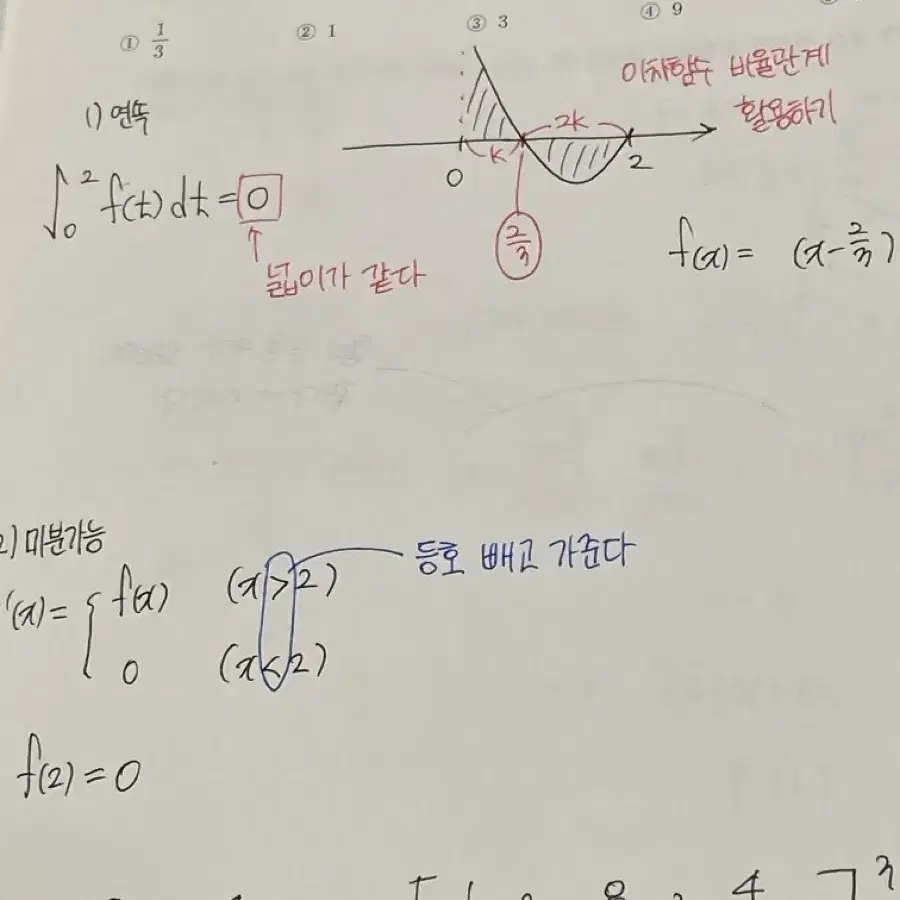 ① 1/3 ② 1 ③ 3 ④ 9
이차함수 비율관계
활용하기
1) 연뚝
∫₀² f(t) dt = 0
넓이가 같다
k 2k
0 2
2/3
f(x) = (x - 2/3)
2) 미분가능
'(x) = { f(x) (x > 2)
0 (x < 2)
등호 빼고 가준다
f(2) = 0